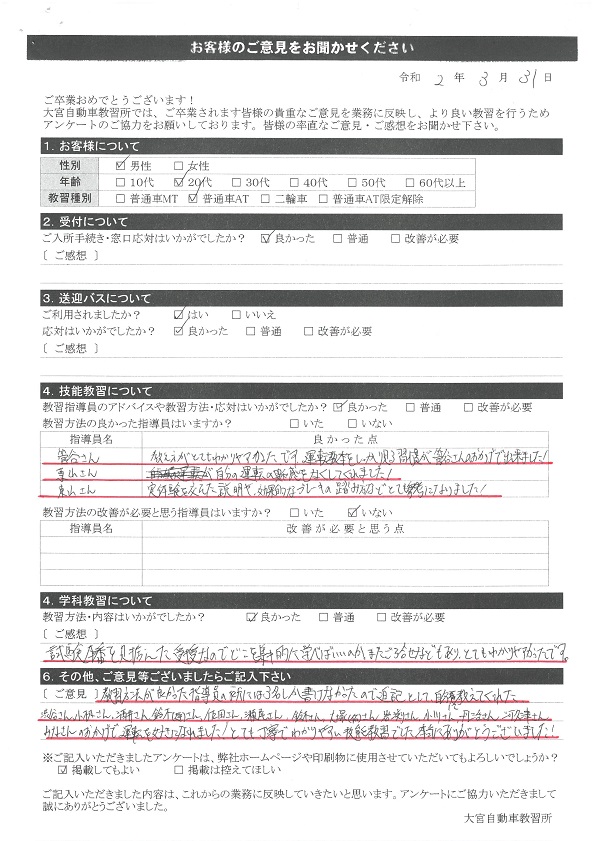 お客様のご意見をお聞かせください
令和 2 年 3 月 31 日
ご卒業おめでとうございます！
大宮自動車教習所では、ご卒業されます皆様の貴重なご意見を業務に反映し、より良い教習を行うため
アンケートのご協力をお願いしております。皆様の率直なご意見・ご感想をお聞かせ下さい。
1. お客様について
性別 ☑男性 □女性
年齢 □10代 ☑20代 □30代 □40代 □50代 □60代以上
教習種別 □普通車MT ☑普通車AT □二輪車 □普通車AT限定解除
2. 受付について
ご入所手続き・窓口応対はいかがでしたか？ ☑良かった □普通 □改善が必要
〔 ご感想 〕
3. 送迎バスについて
ご利用されましたか？ ☑はい □いいえ
応対はいかがでしたか？ ☑良かった □普通 □改善が必要
〔 ご感想 〕
4. 技能教習について
教習指導員のアドバイスや教習方法・応対はいかがでしたか？ ☑良かった □普通 □改善が必要
教習方法の良かった指導員はいますか？ □いた □いない
指導員名 良かった点
菅谷さん 教え方がとてもわかりやすかったです。運転教本をしっかり見る習慣が菅谷さんのおかげで出来ました！
さん 自分の運転の をなくしてくれました！
さん 実体験を交えた説明や、効果的なブレーキの踏み方などとても参考になりました！
教習方法の改善が必要と思う指導員はいますか？ □いた ☑いない
指導員名 改善が必要と思う点
4. 学科教習について
教習方法・内容はいかがでしたか？ ☑良かった □普通 □改善が必要
〔 ご感想 〕
試験 を見据えた授業なのでどこを集中的に学べばいいのか、またごろ合せなどもあり、とてもわかりやすかったです。
6. その他、ご意見等ございましたらご記入下さい
〔 ご意見 〕 教習方法が良かった指導員の所には3名しか書けなかったので追記として、 教えてくれた
さん、小 さん、 さん、鈴木 さん、佐田さん、 さん、鈴木 さん、 さん、 さん、小川さん、丹治さん、 さん
みなさんのおかげで運転を好きになれました！とても丁寧でわかりやすい技能教習でした。本当にありがとうございました！
※ご記入いただきましたアンケートは、弊社ホームページや印刷物に使用させていただいてもよろしいでしょうか？
☑掲載してもよい □掲載は控えてほしい
ご記入いただきました内容は、これからの業務に反映していきたいと思います。アンケートにご協力いただきまして
誠にありがとうございました。
大宮自動車教習所